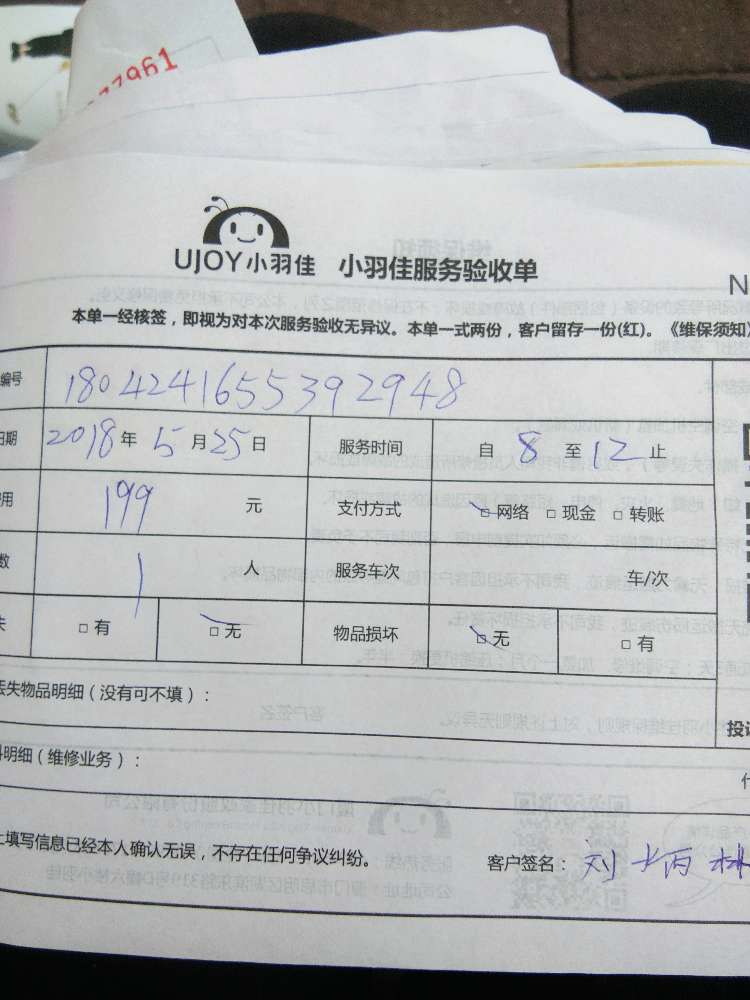 77961
UJOY小羽佳 小羽佳服务验收单
N
本单一经核签，即视为对本次服务验收无异议。本单一式两份，客户留存一份(红)。《维保须知》
编号 1804241655392948
日期 2018年5月25日 服务时间 自8至12止
用 199元 支付方式 □网络 □现金 □转账
数 1人 服务车次 车/次
失 □有 □无 物品损坏 □无 □有
丢失物品明细（没有可不填）：
投诉
料明细（维修业务）：
上填写信息已经本人确认无误，不存在任何争议纠纷。 客户签名：刘炳林